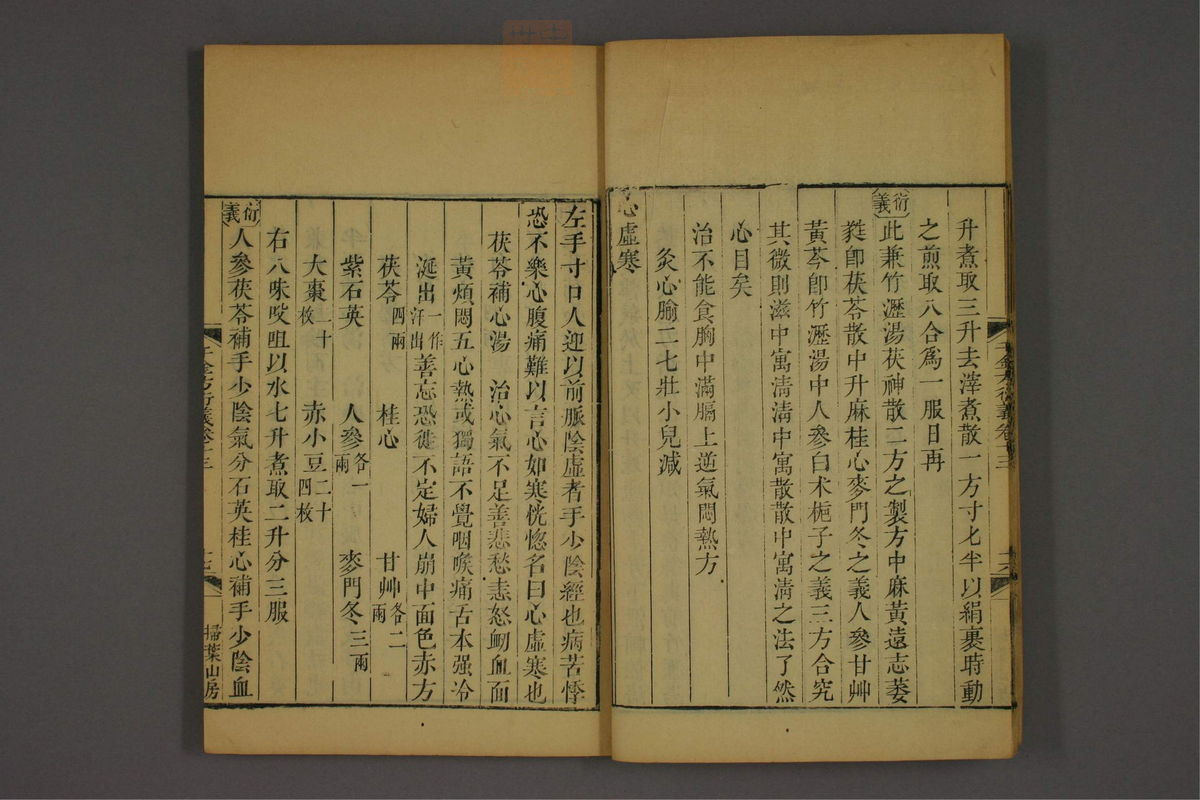 升煮取三升去滓煮散一方寸匕半以絹裹時動
之煎取八合爲一服日再
衍義
此兼竹瀝湯茯神散二方之製方中麻黃遠志萎
蕤卽茯苓散中升麻桂心麥門冬之義人參甘艸
黃芩卽竹瀝湯中人參白术梔子之義三方合究
其微則滋中寓淸淸中寓散散中寓淸之法了然
心目矣
治不能食胸中滿膈上逆氣悶熱方
灸心腧二七壯小兒減
心虛寒
左手寸口人迎以前脈陰虛者手少陰經也病苦悸
恐不樂心腹痛難以言心如寒恍惚名曰心虛寒也
茯苓補心湯 治心氣不足善悲愁恚怒衂血面
黃煩悶五心熱或獨語不覺咽喉痛舌本强冷
涎出一作汗出善忘恐徙不定婦人崩中面色赤方
茯苓四兩 桂心 甘艸各二兩
紫石英 人參各一兩 麥門冬三兩
大棗二十枚 赤小豆二十四枚
右八味㕮咀以水七升煮取二升分三服
衍義
人參茯苓補手少陰氣分石英桂心補手少陰血
千金方衍義卷十三
十七
掃葉山房